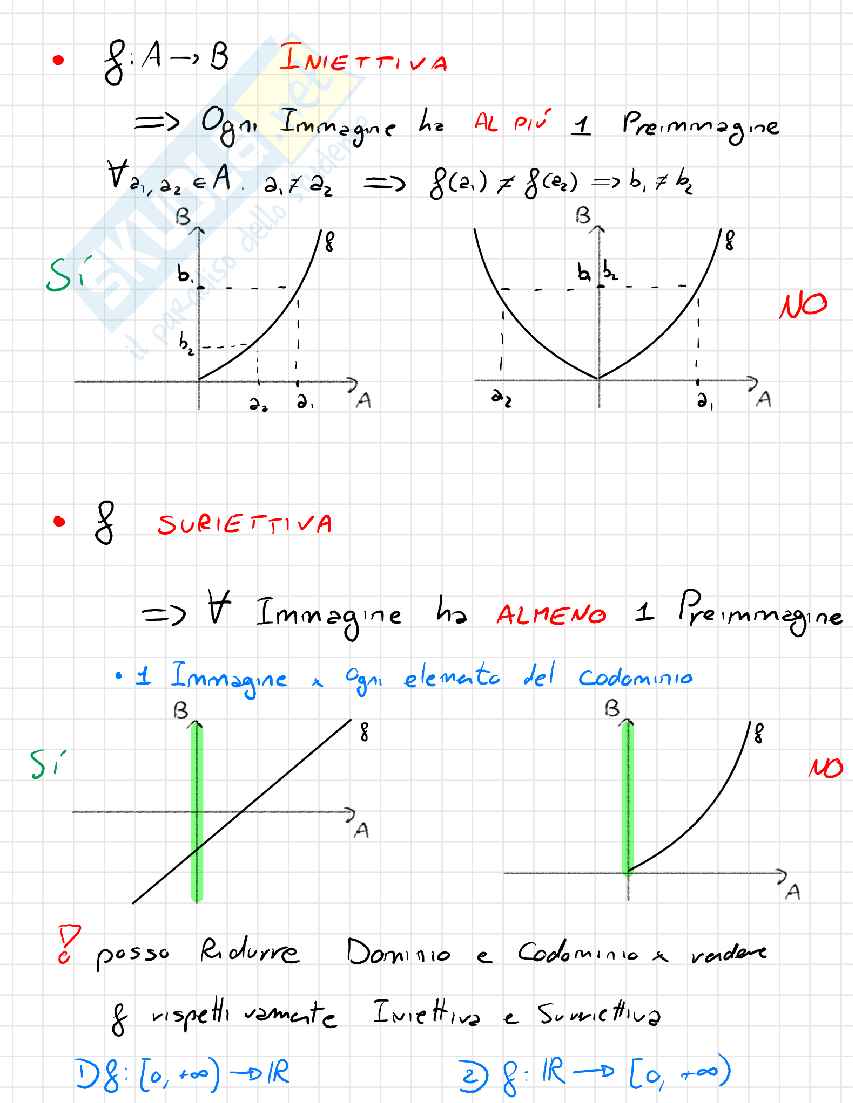 • f: A → B INIETTIVA
=> Ogni Immagine ha AL PIÚ 1 Preimmagine
∀a₁, a₂ ∈ A. a₁ ≠ a₂ => f(a₁) ≠ f(a₂) => b₁ ≠ b₂
SÍ B f b₁ b₂ a₂ a₁ A
B f b₁ b₂ a₂ a₁ A NO
• f SURIETTIVA
=> ∀ Immagine ha ALMENO 1 Preimmagine
• 1 Immagine x ogni elemento del codominio
SÍ B f A
B f A NO
! posso Ridurre Dominio e Codominio x rendere
f rispettivamente Iniettiva e Suriettiva
1) f: [0, +∞) → ℝ 2) f: ℝ → [0, +∞)
SKUOLA.net
il paradiso dello studente